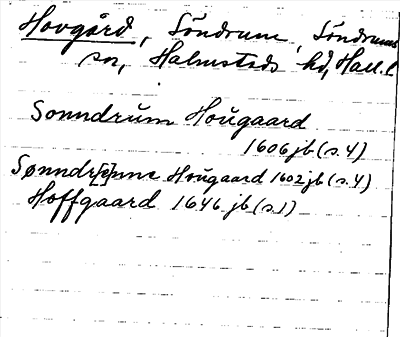 Hovgård, Söndrum, Söndrums
sn, Halmstads hd, Hall. l.
Sonndrŭm Hoŭgaard
1606 jb (s. 4)
Sønndr[e]nne Hoŭgaard 1602 jb (s. 4)
Hoffgaard 1646 jb (s. 1)